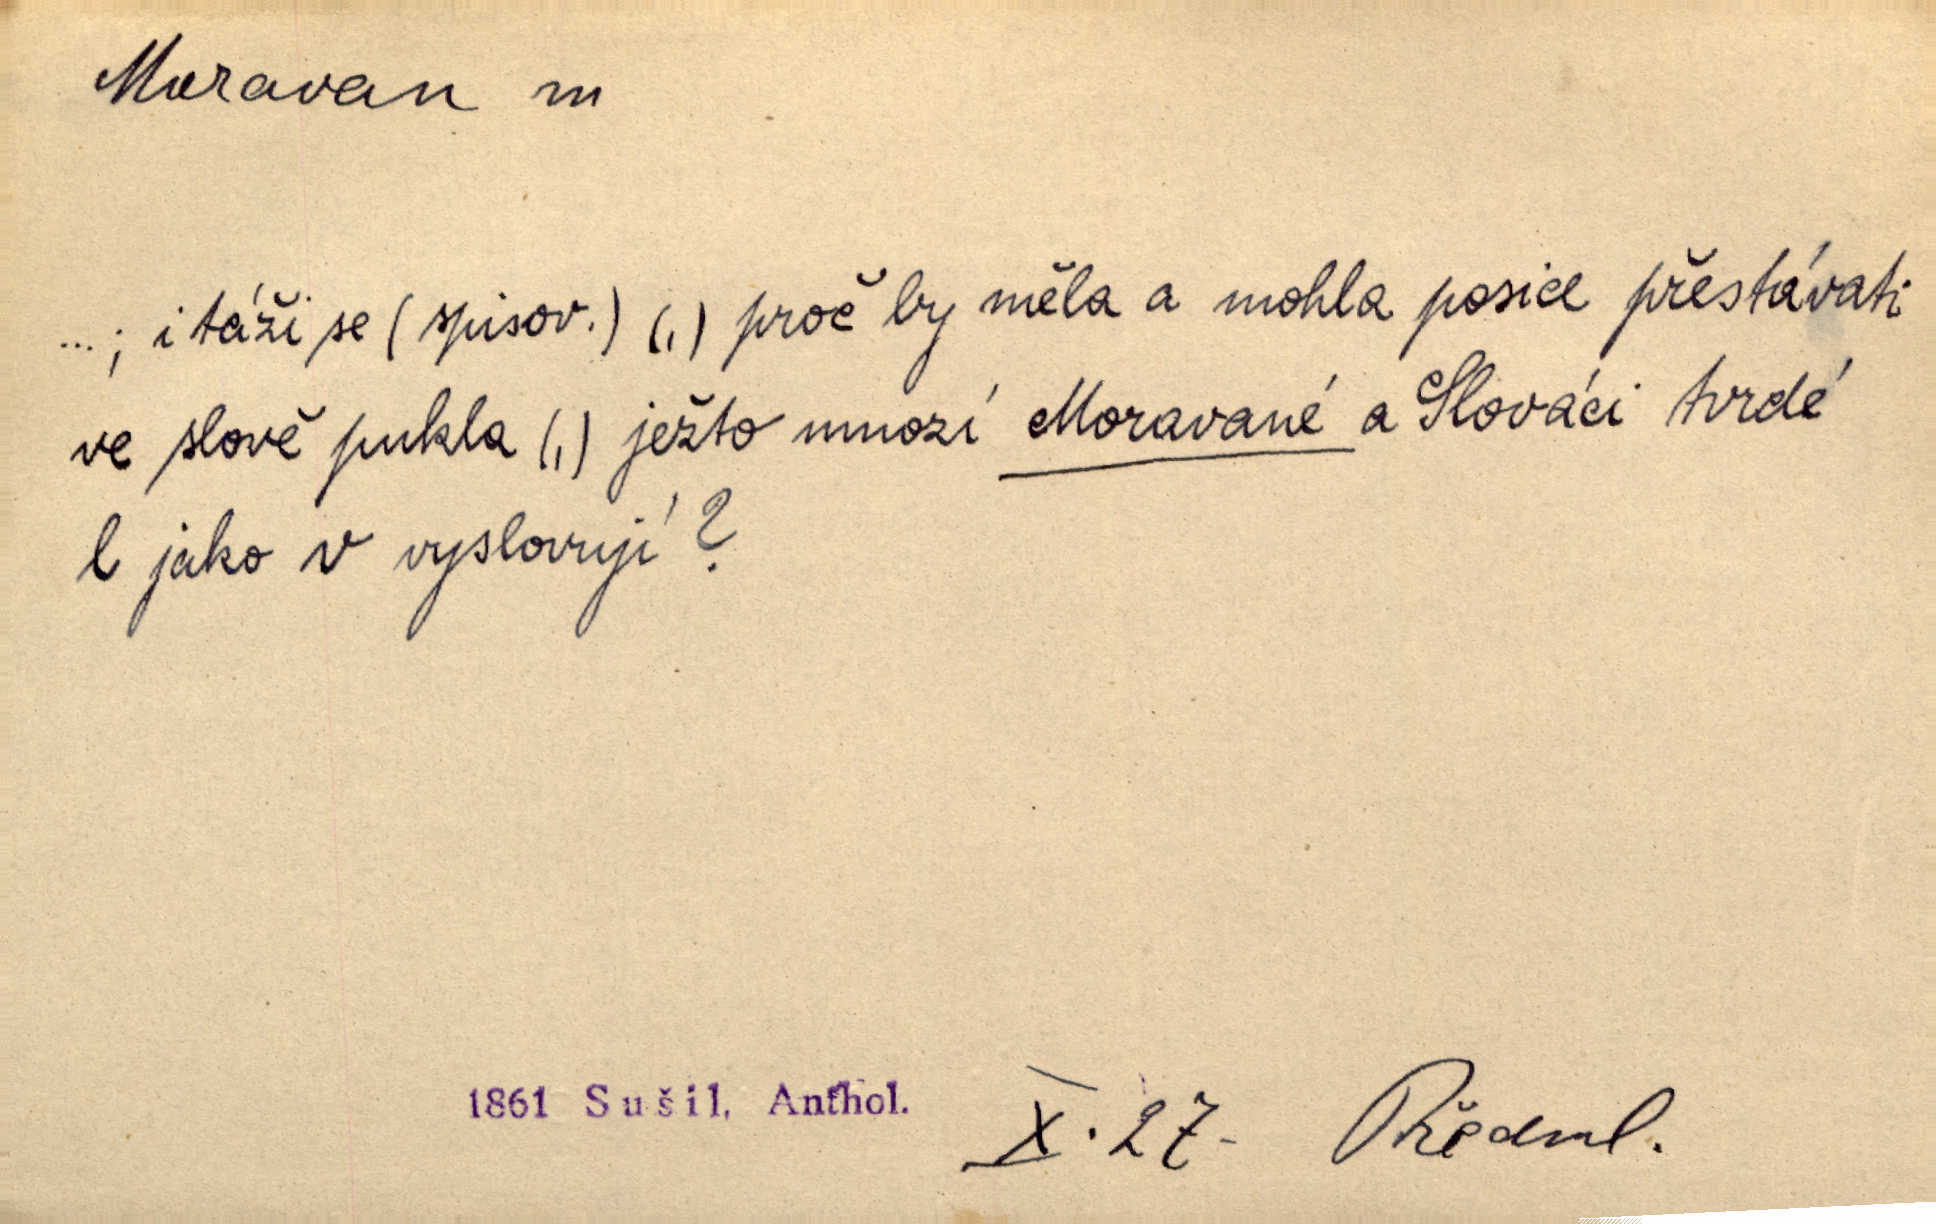 Moravan m
...; i táži se (spisov.) (,) proč by měla a mohla posice přestávati
ve slově pukla (,) ježto mnozí Moravané a Slováci tvrdé
l jako v vyslovují?
1861 Sušil, Anthol. X. 27- Předml.